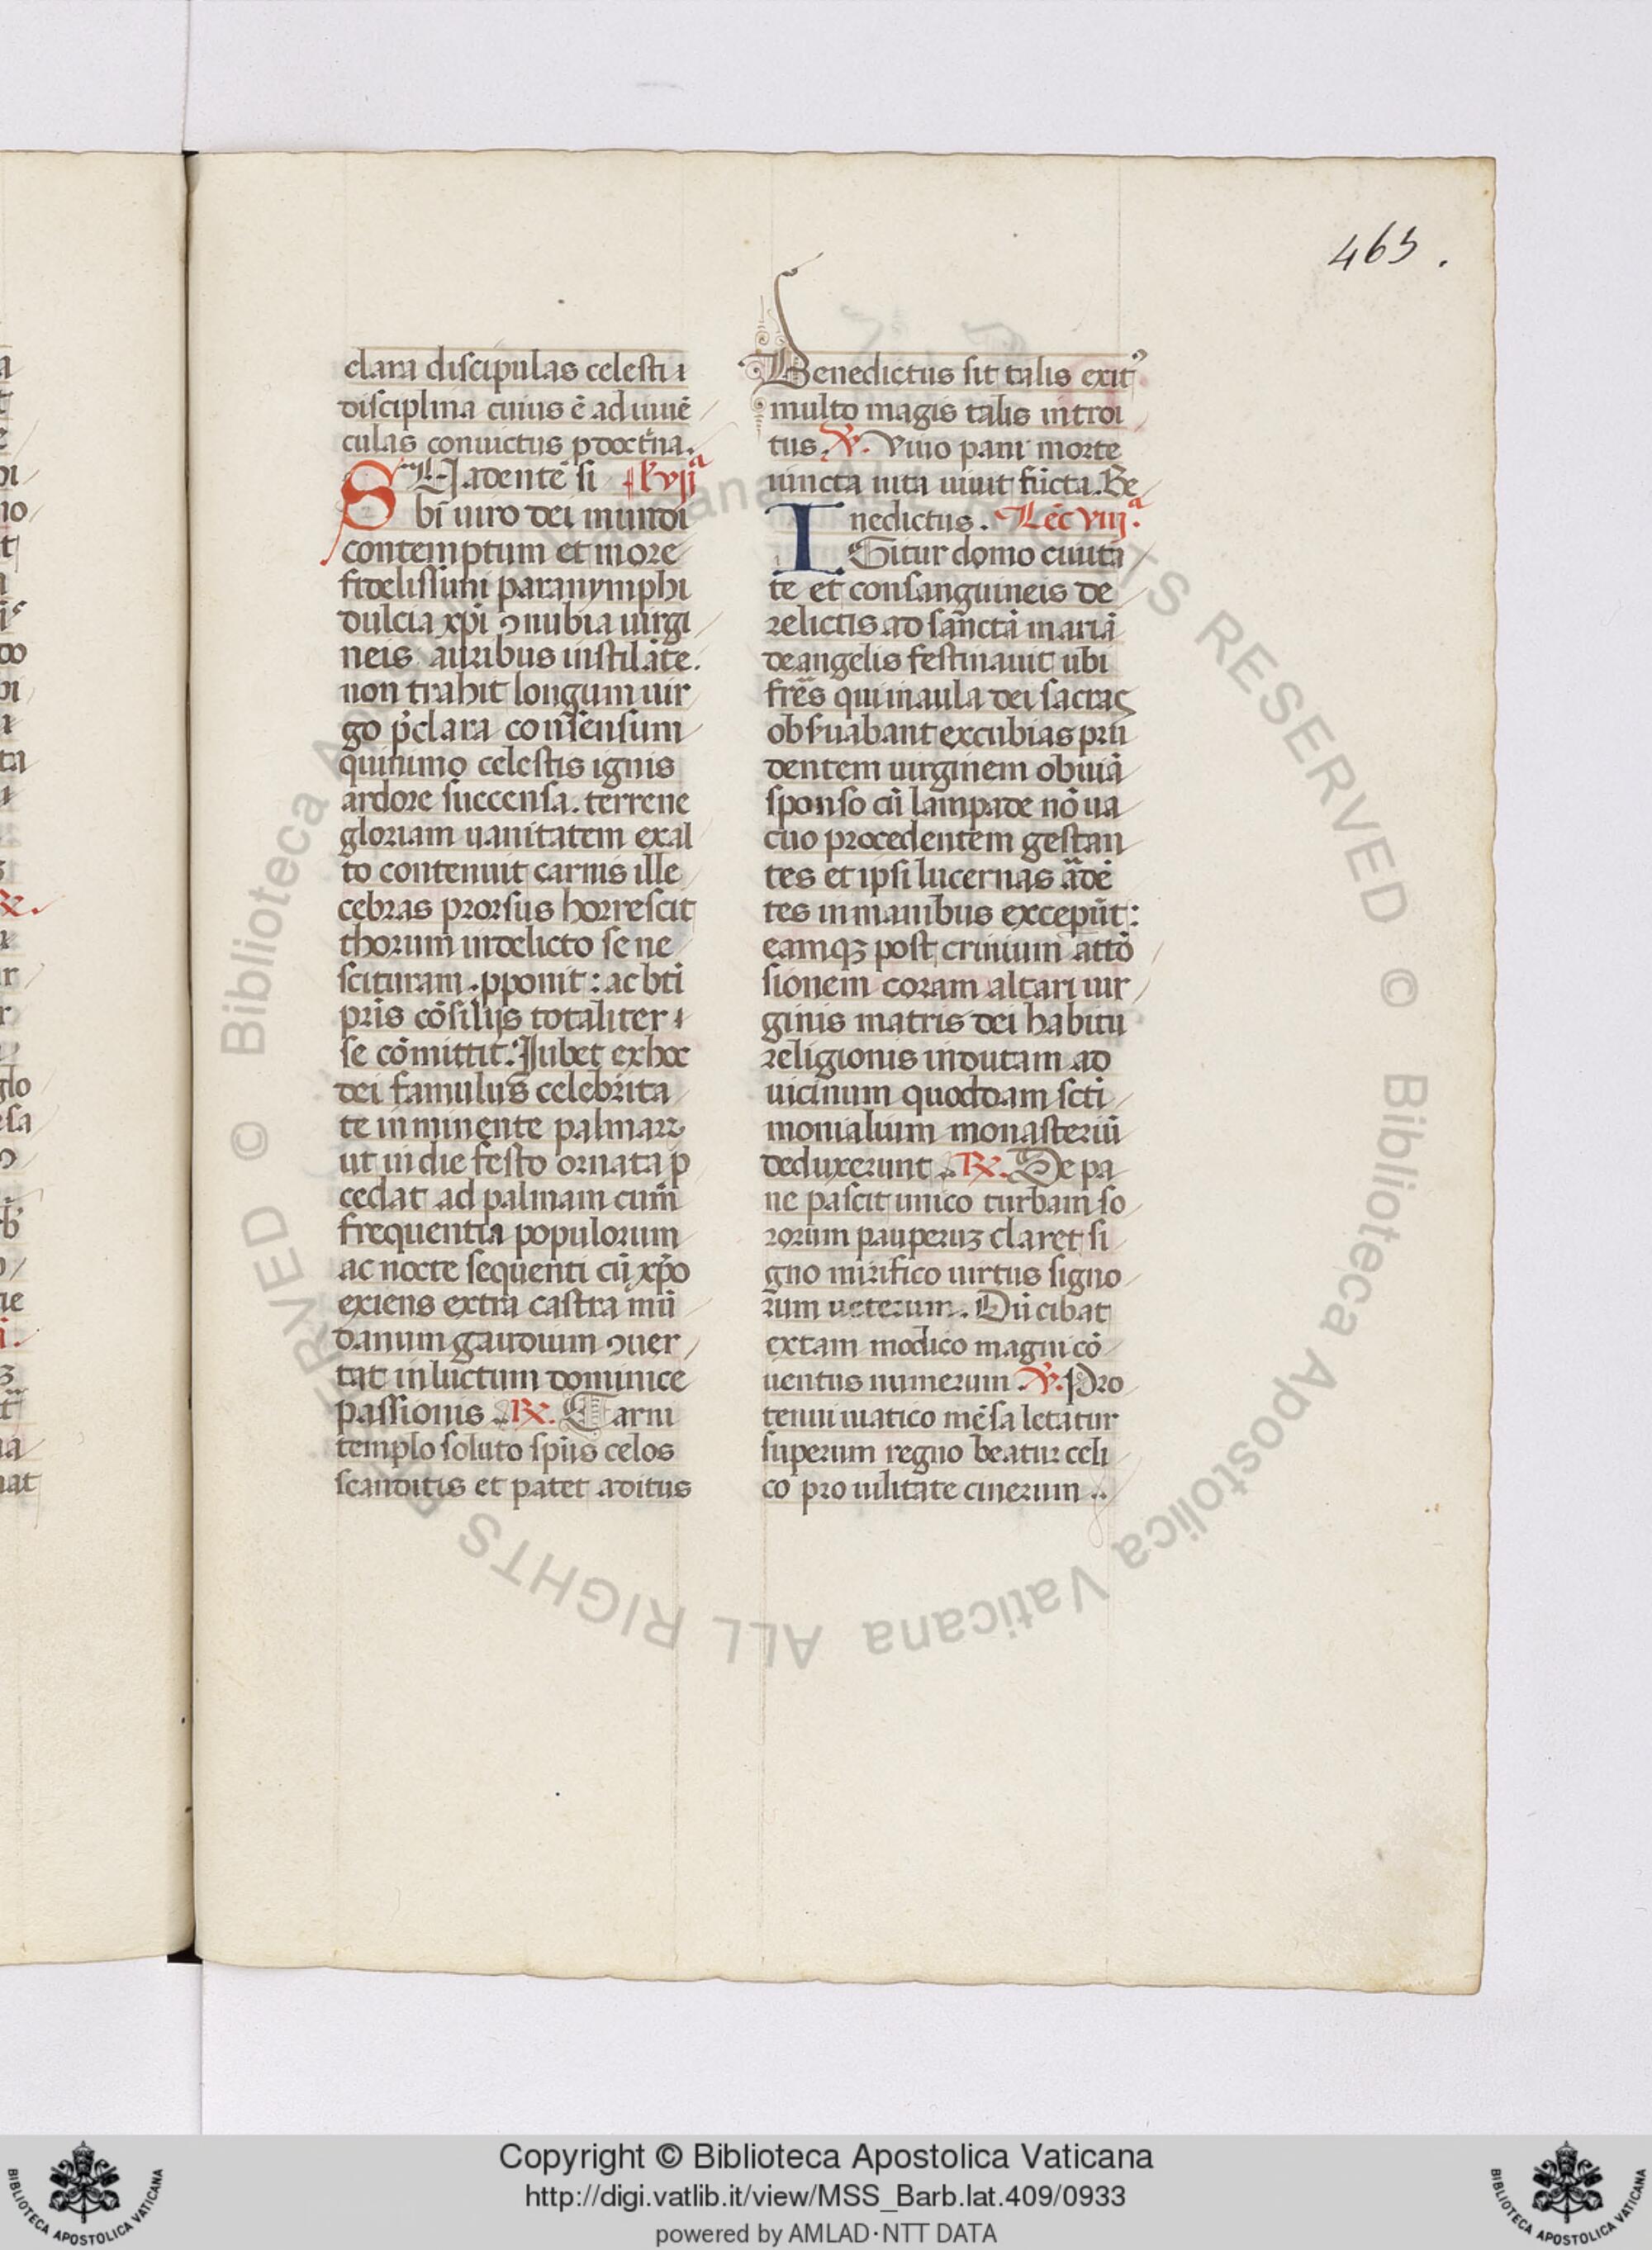 463.
clara discipulas celesti i
disciplina cuius ē ad iuuē
culas conuictus p doctⁱna.
Suadente si lc̄ vijᵃ
bi uiro dei mundi
contemptum et more
fidelissimi paranymphi
dulcia xp̄i ↄnubia uirgi
neis auribus instilāte.
non trahit longum uir
go p̄clara consensum
quinimo celestis ignis
ardore succensa. terrene
gloriam uanitatem exal
to contenuit carnis ille
cebras prorsus horrescit
thorum in delicto se ne
scituram pponit: ac bti
pr̄is cōsilijs totaliter i
se cōmittit. Jubet ex hoc
dei famulus celebrita
te inminente palmarꝝ
ut in die festo ornata p
cedat ad palmam cum̄
frequentia populorum
ac nocte sequenti cū xp̄o
exiens extra castra mū
danum gaudium ↄuer
tat in luctum dominice
passionis. ℞. Carni
templo soluto sp̄us celos
scanditis et patet aditus
Benedictus sit talis exit᾿
multo magis talis introi
tus. ℣. Viuo pani morte
iuncta uita uiuit fūcta. Be
nedictus. Lec̄ viijᵃ.
Igitur domo ciuita
te et consanguineis de
relictis ad sanctā mariā
de angelis festinauit ubi
fr̄es qui in aula dei sacras
obs̄uabant excubias pru
dentem uirginem obuiā
sponso cū lampade nō ua
cuo procedentem gestan
tes et ipsi lucernas ardē
tes in manibus excepūt:
eamqꝫ post crinium attō
sionem coram altari uir
ginis matris dei habitu
religionis indutam ad
uicinum quoddam scti
monialium monasteriū
deduxerunt. ℞. De pa
ne pascit unico turbam so
rorum pauperuꝫ claret si
gno mirifico uirtus signo
rum ueterum. Dū cibat
extam modico magni cō
uentus numerum. ℣. Pro
tenui uiatico mēsa letatur
superum regno beatur celi
co pro uilitate cinerum..
© Biblioteca Apostolica Vaticana ALL RIGHTS RESERVED © Biblioteca Apostolica Vaticana ALL RIGHTS RESERVED
Copyright © Biblioteca Apostolica Vaticana
http://digi.vatlib.it/view/MSS_Barb.lat.409/0933
powered by AMLAD·NTT DATA
BIBLIOTECA APOSTOLICA VATICANA
BIBLIOTECA APOSTOLICA VATICANA